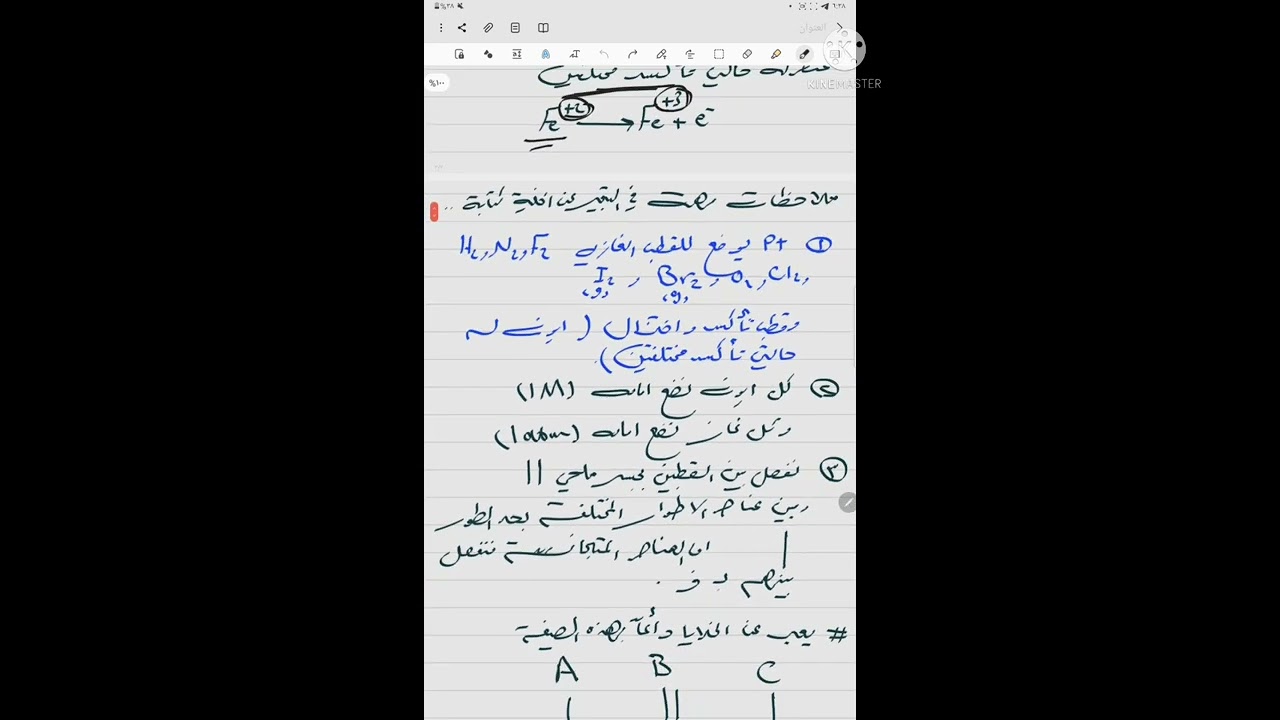 %٣٨ ٦:٣٨
العنوان
KINEMASTER
%١٠٠
حالتي تأكسد مختلفتين
Fe+2 → Fe+3 + e-
ملاحظات مهمة في التعبير عن الخلية كتابة ..
① Pt يوضع للقطب الغازي H2, N2, F2
, Cl2, O2, Br2(g), I2(g)
وقطب تأكسد واختزال (ايون له
حالتي تأكسد مختلفتين).
② كل ايون نضع امامه (1M)
وكل غاز نضع امامه (1atm)
③ نفصل بين القطبين بجسر ملحي ||
وبين عناصر الاطوار المختلفة بحد الطور
| اما العناصر المتجانسة فنفصل
بينهم بـ و .
# يعبر عن الخلايا دائماً بهذه الصيغة
A B C
| || |